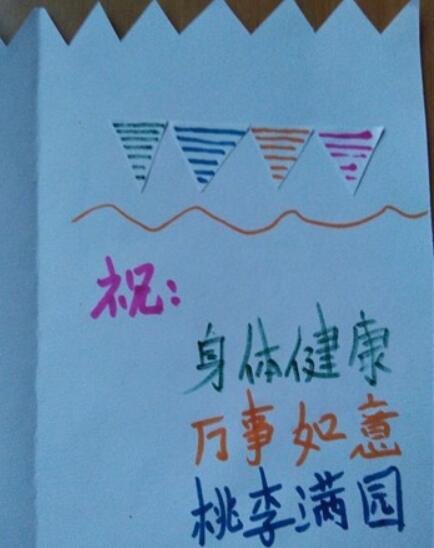 祝:
身体健康
万事如意
桃李满园